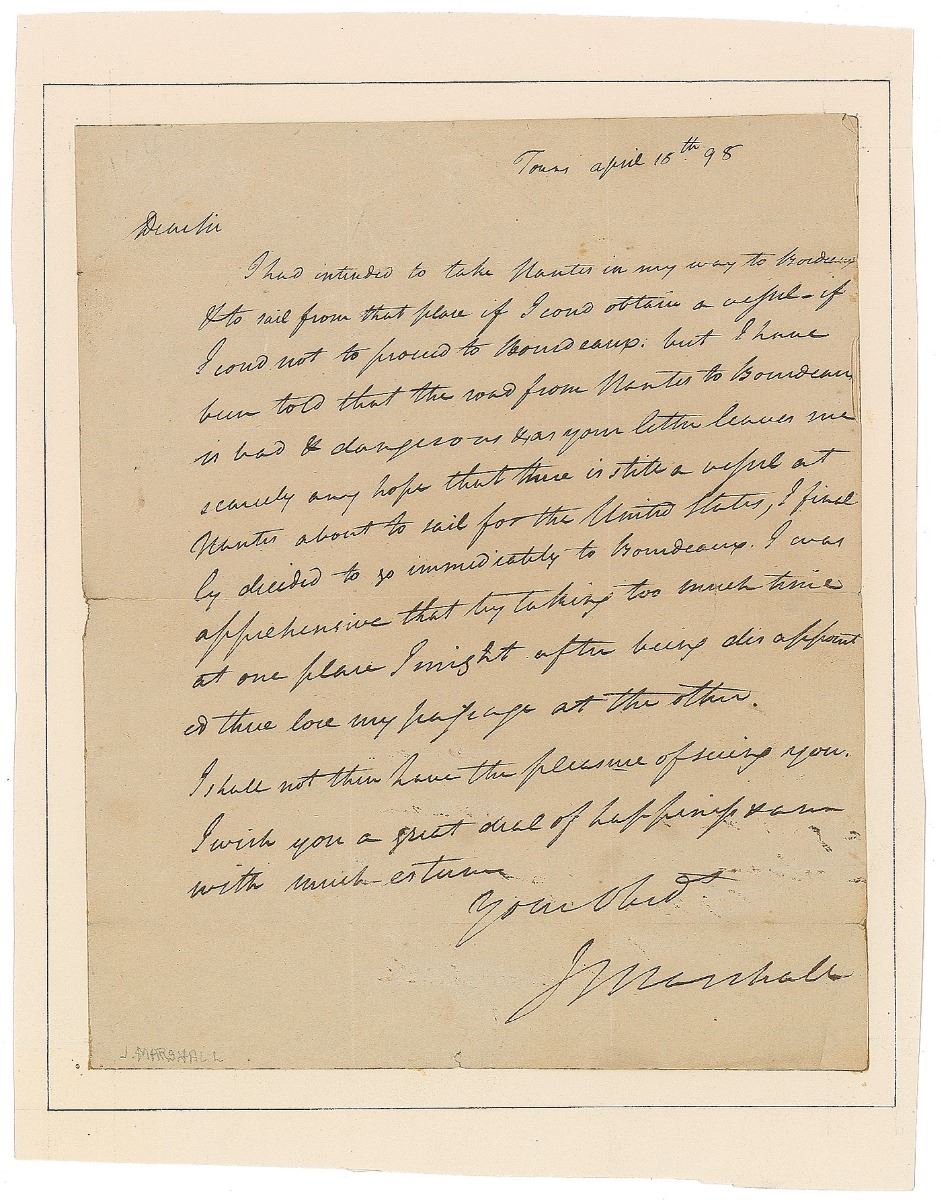 Tours april 18th 98
Dear Sir
I had intended to take Nantes in my way to Bordeaux
& to sail from that place if I coud obtain a vessel - if
I coud not to proceed to Bourdeaux. but I have
been told that the road from Nantes to Bourdeaux
is bad & dangerous & as your letter leaves me
scarcely any hope that there is still a vessel at
Nantes about to sail for the United States, I final
ly decided to go immediately to Bourdeaux. I was
apprehensive that by taking too much time
at one place I might after being disappoint
ed there lose my passage at the other.
I shall not then have the pleasure of seeing you.
I wish you a great deal of happiness & am
with much esteem
Your Obedt
J Marshall
J. MARSHALL